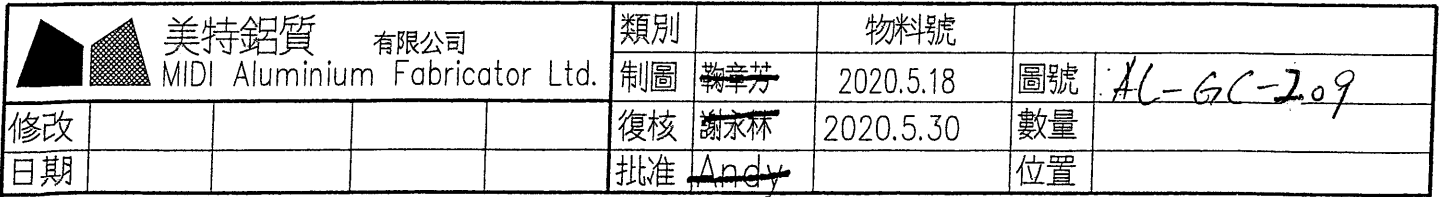 美特鋁質 有限公司
MIDI Aluminium Fabricator Ltd.
類別 物料號
制圖 鞠章芳 2020.5.18 圖號 AL-GC-209
修改 復核 謝永林 2020.5.30 數量
日期 批准 Andy 位置